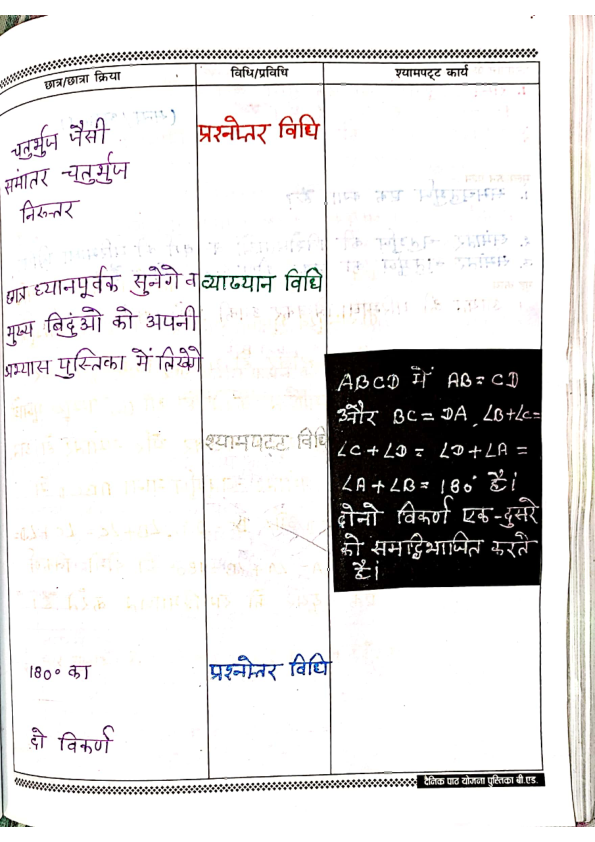 छात्र/छात्रा क्रिया
विधि/प्रविधि
श्यामपट्ट कार्य
चतुर्भुज जैसी
समांतर चतुर्भुज
निरुत्तर
प्रश्नोत्तर विधि
छात्र ध्यानपूर्वक सुनेगे व
मुख्य बिंदुओ को अपनी
अभ्यास पुस्तिका में लिखेगे
व्याख्यान विधि
श्यामपट्ट विधि
ABCD में AB = CD
और BC = DA, ∠B+∠C=
∠C+∠D = ∠D+∠A =
∠A+∠B = 180° है।
दोनो विकर्ण एक-दुसरे
को समद्विभाजित करते
है।
180° का
प्रश्नोत्तर विधि
दो विकर्ण
दैनिक पाठ योजना पुस्तिका बी.एड.